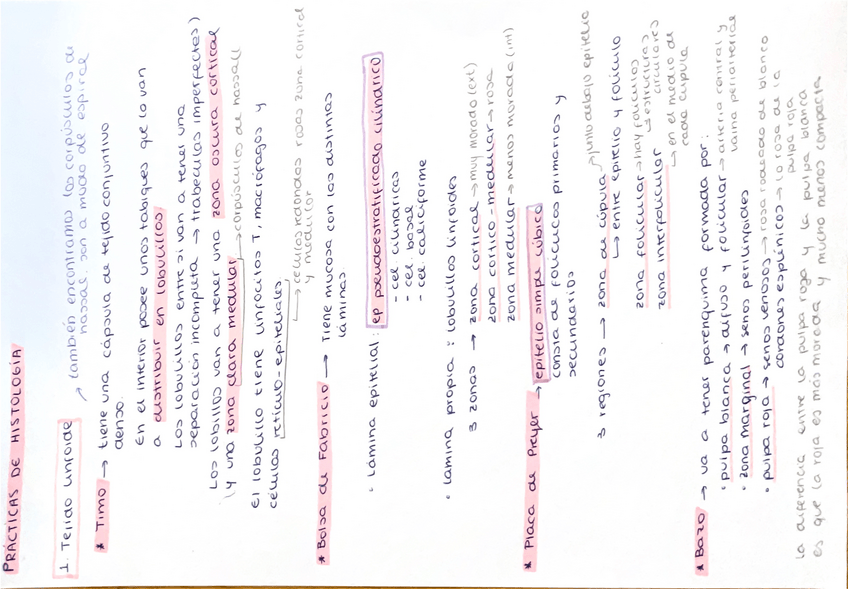 PRÁCTICAS DE HISTOLOGÍA
1. Tejido linfoide
→ también encontramos los corpúsculos de
hassal. son a modo de espiral
* Timo → tiene una cápsula de tejido conjuntivo
denso.
En el interior posee unos tabiques que lo van
a distribuir en lobulillos
Los lobulillos entre sí van a tener una
separación incompleta → trabeculas imperfectas)
Los lobillos van a tener una zona oscura cortical
(y una zona clara medular → corpúsculos de hassall
El lobulillo tiene linfocitos T, macrófagos y
células retículo-epiteliales
→ células redondas rosas zona cortical
y medular
* Bolsa de Fabricio → Tiene mucosa con las distintas
láminas
• Lámina epitelial: ep pseudoestratificado cilíndrico
- cel. cilíndricas
- cel. basal
- cel. caliciforme
• Lámina propia: lobulillos linfoides
3 zonas → zona cortical → muy morada (ext)
zona cortico-medular → rosa
zona medular → menos morada (int)
* Placa de Preyer → epitelio simple cúbico
consta de folículos primarios y
secundarios
3 regiones → zona de cúpula → junto debajo epitelio
↳ entre epitelio y folículo
zona folicular → hay folículos
↳ estructuras
circulares
zona interfolicular
↳ en el medio de
cada cúpula
* Bazo → va a tener parenquima formada por:
• pulpa blanca → difuso y folicular → arteria central y
vaina periarterial
• zona marginal → senos perilinfoides
• pulpa roja → senos venosos → rosa rodeado de blanco
cordones esplínicos → lo rosa de la
pulpa roja
la diferencia entre la pulpa roja y la pulpa blanca
es que la roja es más morada y mucho menos compacta